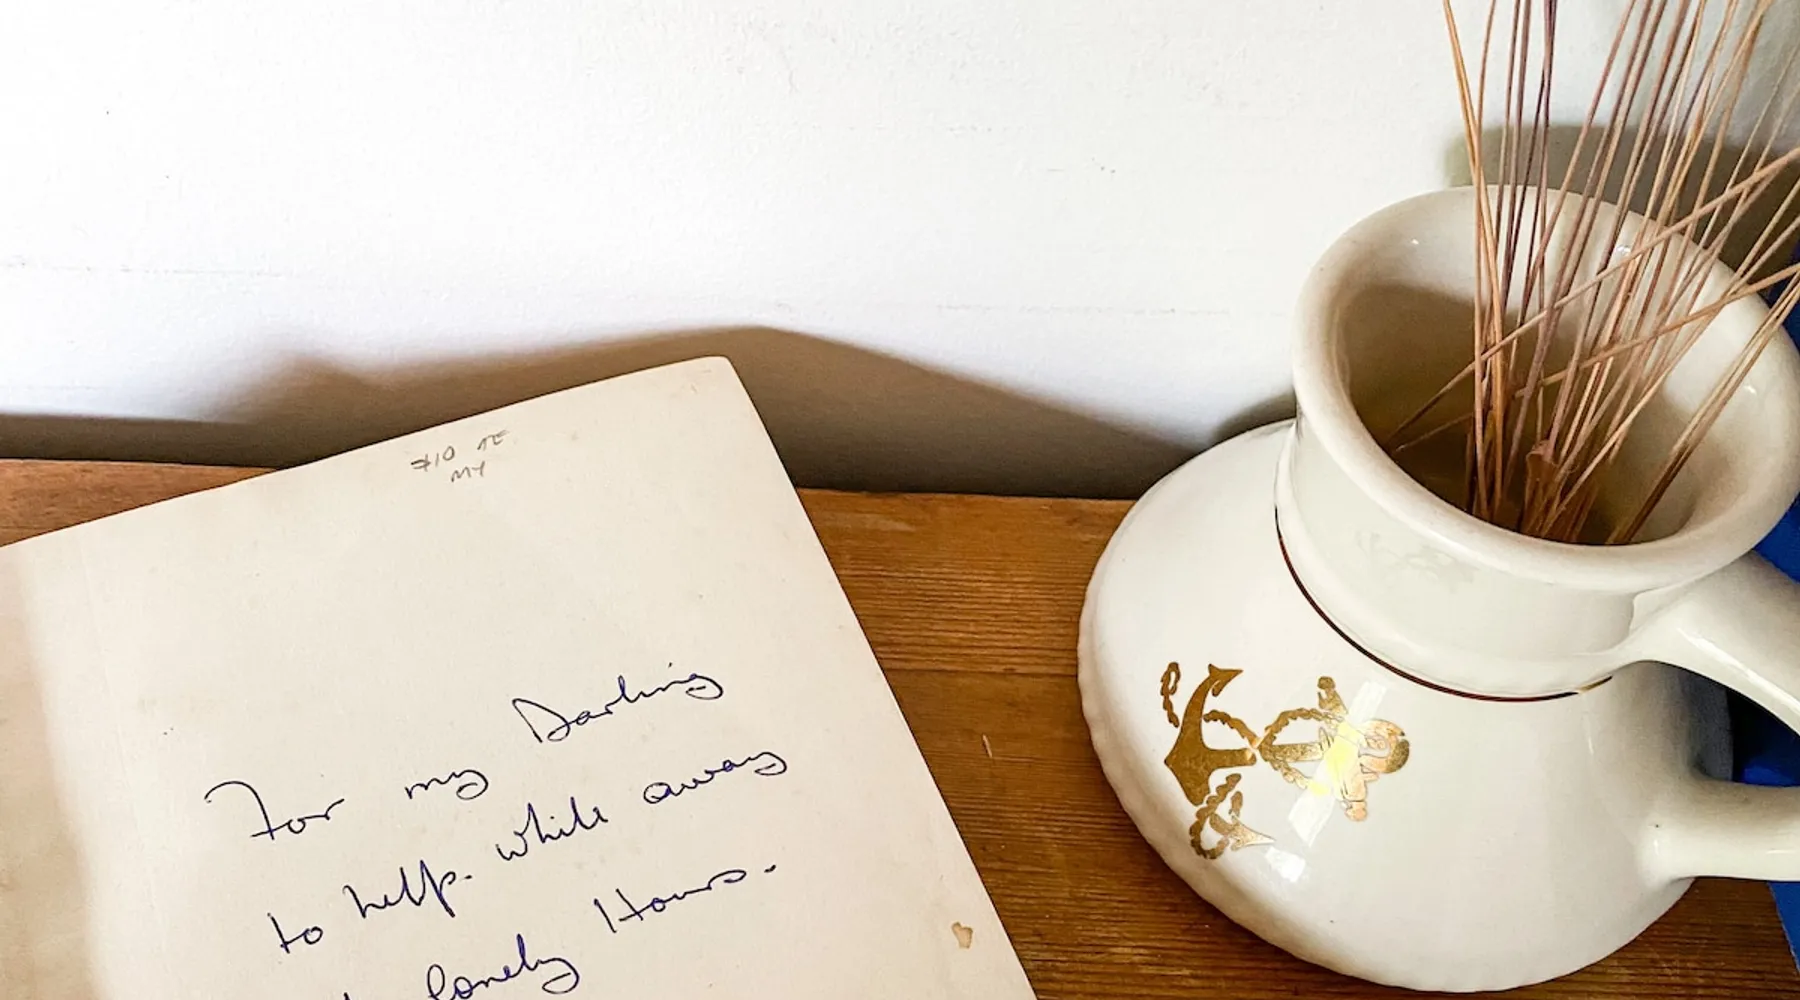 $10
MY
For my Darling
to help while away
lonely Hours.